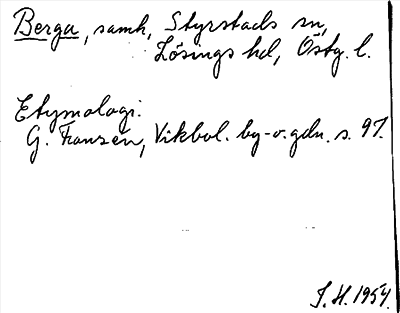 Berga, samh, Styrstads sn,
Lösings hd, Östg. l.
Etymologi.
G. Franzén, Vikbol. by- o. gdn. s. 97.
J. H. 1954.